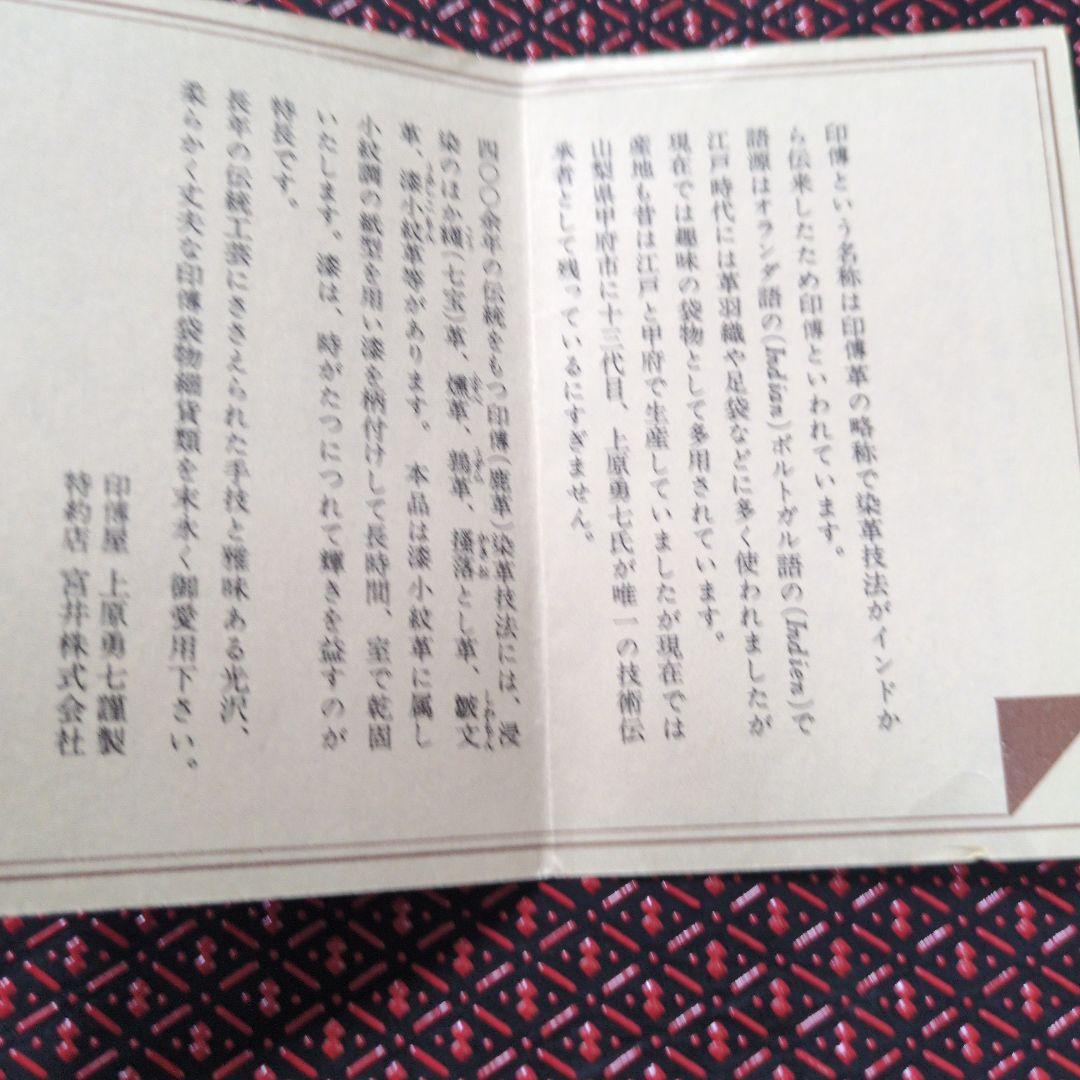 印傳という名称は印傳革の略称で染革技法がインドか
ら伝来したため印傳といわれています。
語源はオランダ語の(Indian)ポルトガル語の(Indien)で
江戸時代には革羽織や足袋などに多く使われましたが
現在では趣味の袋物として多用されています。
産地も昔は江戸と甲府で生産していましたが現在では
山梨県甲府市に十三代目、上原勇七氏が唯一の技術伝
承者として残っているにすぎません。
四〇〇余年の伝統をもつ印傳(鹿革)染革技法には、浸
染のほか纈(七宝)革、燻革、鶉革、掻落とし革、皺文
革、漆小紋革等があります。本品は漆小紋革に属し
小紋調の紙型を用い漆を柄付けして長時間、室で乾固
いたします。漆は、時がたつにつれて輝きを益すのが
特長です。
長年の伝統工芸にささえられた手技と雅味ある光沢、
柔らかく丈夫な印傳袋物細貨類を末永く御愛用下さい。
印傳屋 上原勇七謹製
特約店 宮井株式会社